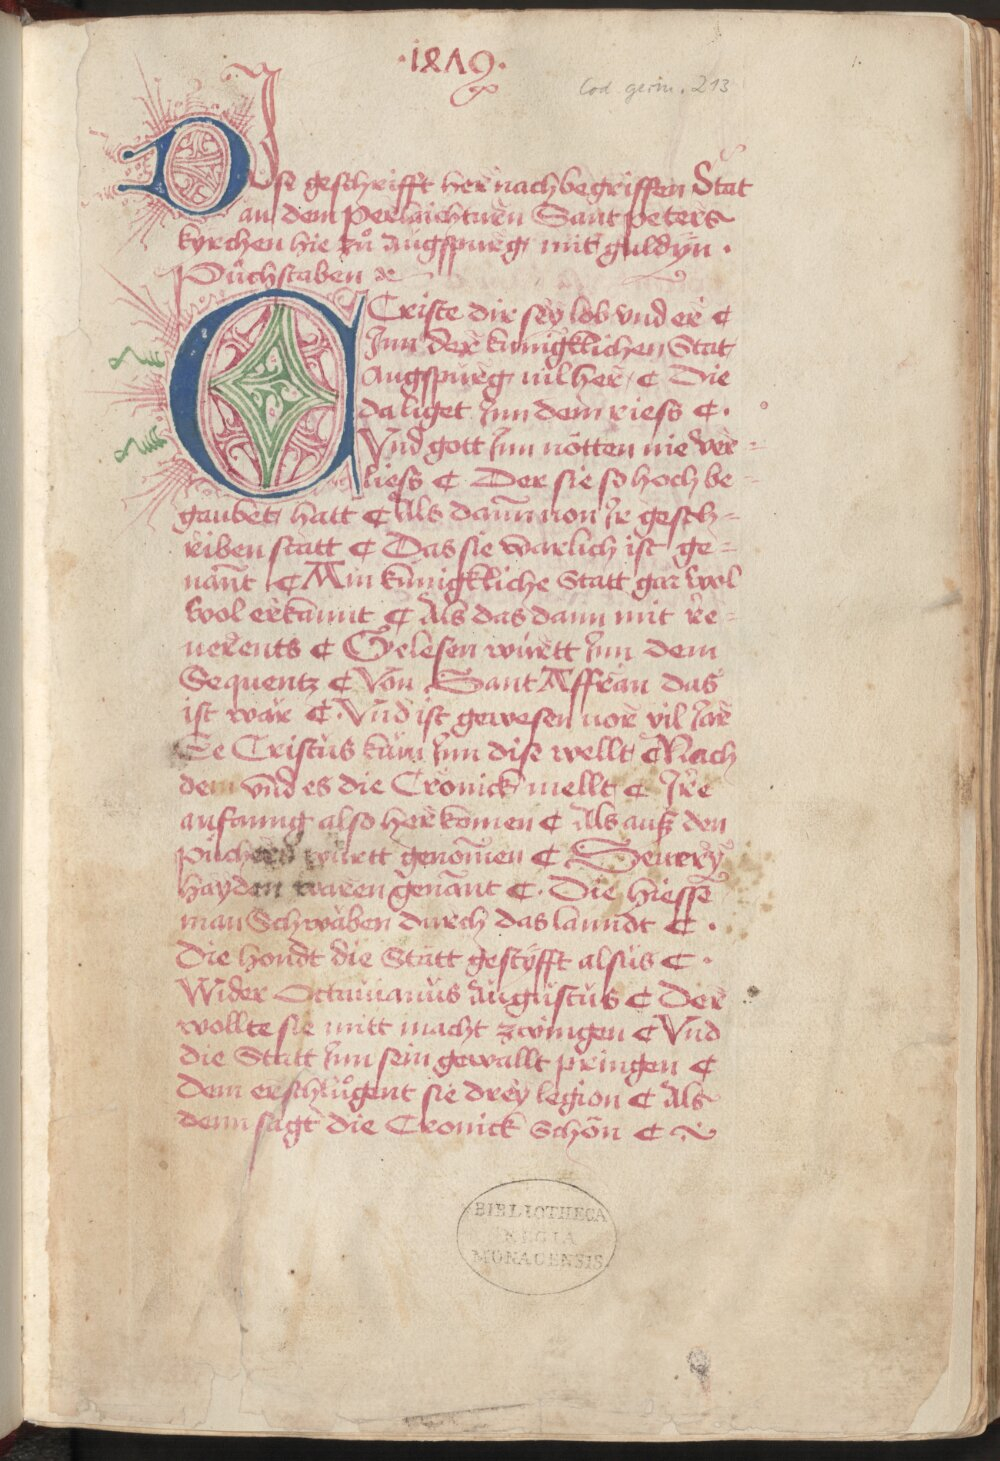 ·1479·
Cod. germ. 213
1.
Dise geschrifft her nach begriffen Stat
an dem perlaichturen Sant peters
kyrchen hie zů Augspurg mit guldyn ·
Půchstaben ꝛc
O Criste dir sey lob vnd er ¢
Inn der kunigklichen Stat
Augspurg vil her ¢ Die
da liget Inn dem riess ¢ ·
Vnd gott Inn nötten nie ver=
liess ¢ Der sie so hoch be=
gaubet hatt ¢ Als dann von Ir gesch=
riben statt ¢ Das sie warlich ist ge=
nant ¢ Ain kunigkliche Statt gar wol
wol erkannt ¢ Als das dann mit re=
uerents ¢ Gelesen württ Inn dem
Sequentz ¢ Von Sant Affran das
ist war ¢ · Vnd ist gewesen vor vil Jar
Ee Cristus kam Inn dise wellt ¢ Nach
dem vnd es die Cronick mellt ¢ Ire
anfanng also herkomen ¢ Als auß den
püchern württ genomen ¢ Seuery
hayden waren genant ¢ · Die hiesse
man Schwaben durch das lanndt ¢ ·
Die hondt die Statt gestyfft alsus ¢ ·
Wider Octauianus Augustus ¢ Der
wollte sie mitt macht zwingen ¢ Vnd
die Statt Inn sein gewallt pringen ¢
Dem erschlůgent sie drey legion ¢ Als
denn sagt die Cronick schön ¢
BIBLIOTHECA
REGIA
MONACENSIS.